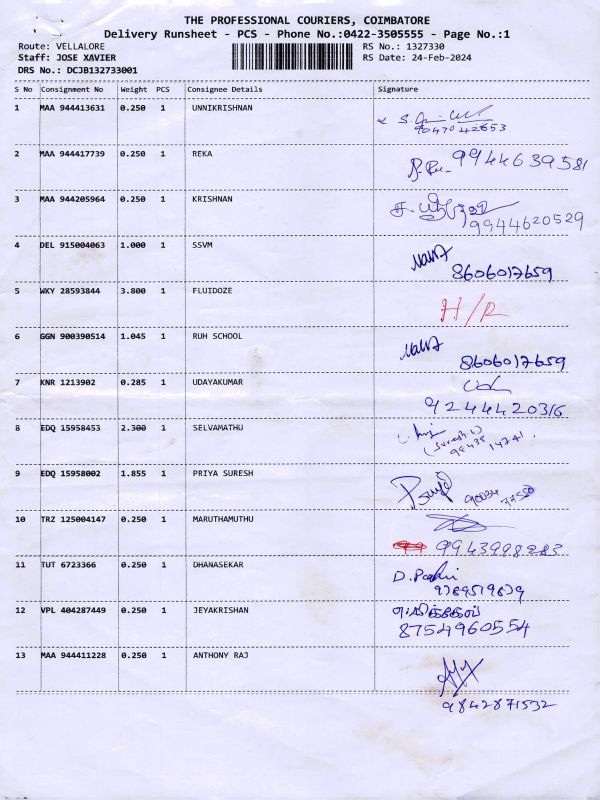 THE PROFESSIONAL COURIERS, COIMBATORE
Delivery Runsheet - PCS - Phone No.:0422-3505555 - Page No.:1
Route: VELLALORE RS No.: 1327330
Staff: JOSE XAVIER RS Date: 24-Feb-2024
DRS No.: DCJB132733001
S No Consignment No Weight PCS Consignee Details Signature
1 MAA 944413631 0.250 1 UNNIKRISHNAN
9047042653
2 MAA 944417739 0.250 1 REKA 9944639581
3 MAA 944205964 0.250 1 KRISHNAN
9944620529
4 DEL 915004063 1.000 1 SSVM
8606017659
5 WKY 28593844 3.800 1 FLUIDOZE H/R
6 GGN 900390514 1.045 1 RUH SCHOOL
8606017659
7 KNR 1213902 0.285 1 UDAYAKUMAR
9244420316
8 EDQ 15958453 2.300 1 SELVAMATHU
9 EDQ 15958002 1.855 1 PRIYA SURESH
10 TRZ 125004147 0.250 1 MARUTHAMUTHU
9943998283
11 TUT 6723366 0.250 1 DHANASEKAR
12 VPL 404287449 0.250 1 JEYAKRISHAN
8754960554
13 MAA 944411228 0.250 1 ANTHONY RAJ
9842871532